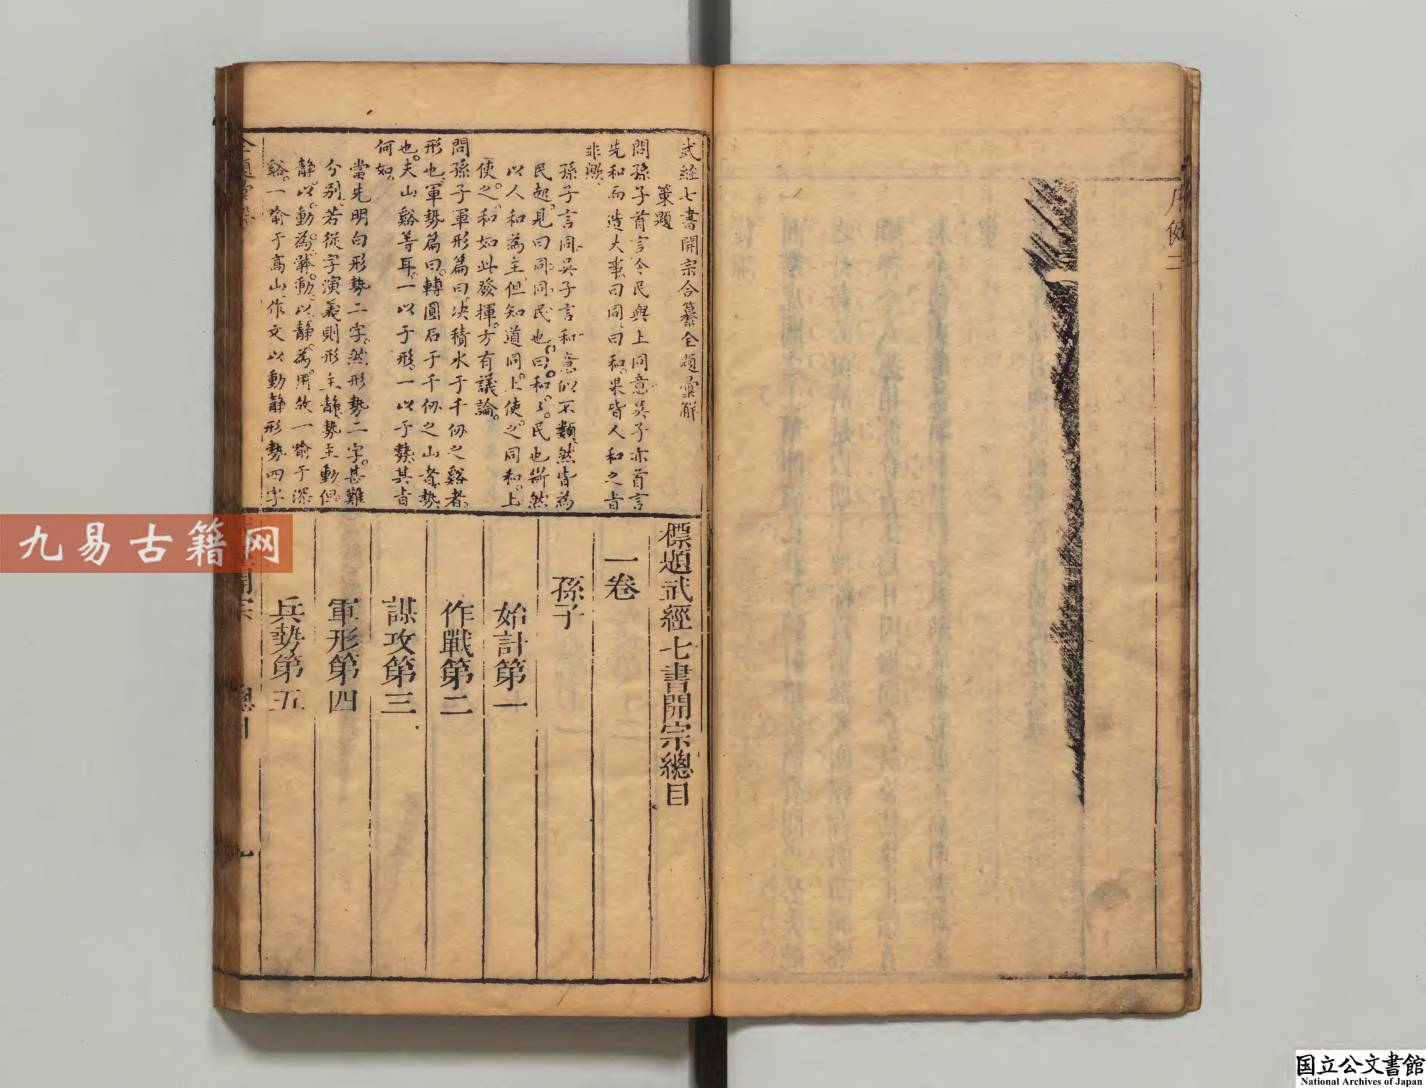 武經七書開宗合纂全題彙解
策題
問孫子首言令民與上同意吳子亦首言
先和而造大事曰同曰和果皆人和之旨
非歟
孫子言同吳子言和意似不類然皆為
民起見曰同同民也曰和和民也
以人和為主但知道同上使之同和上
使之和如此發揮方有議論
問孫子軍形篇曰決積水于千仞之谿者
形也軍勢篇曰轉圓石于千仞之山者勢
也夫山谿等耳一以子形一以子勢其旨
何如
當先明白形勢二字然形勢二字甚難
分別若從字演義則形主靜勢主動但
靜以動為體動以靜為用故一喻于深
谿一喻于高山作文以動靜形勢四字
標題武經七書開宗總目
一卷
孫子
始計第一
作戰第二
謀攻第三
軍形第四
兵勢第五
九易古籍网
国立公文書館
National Archives of Japan